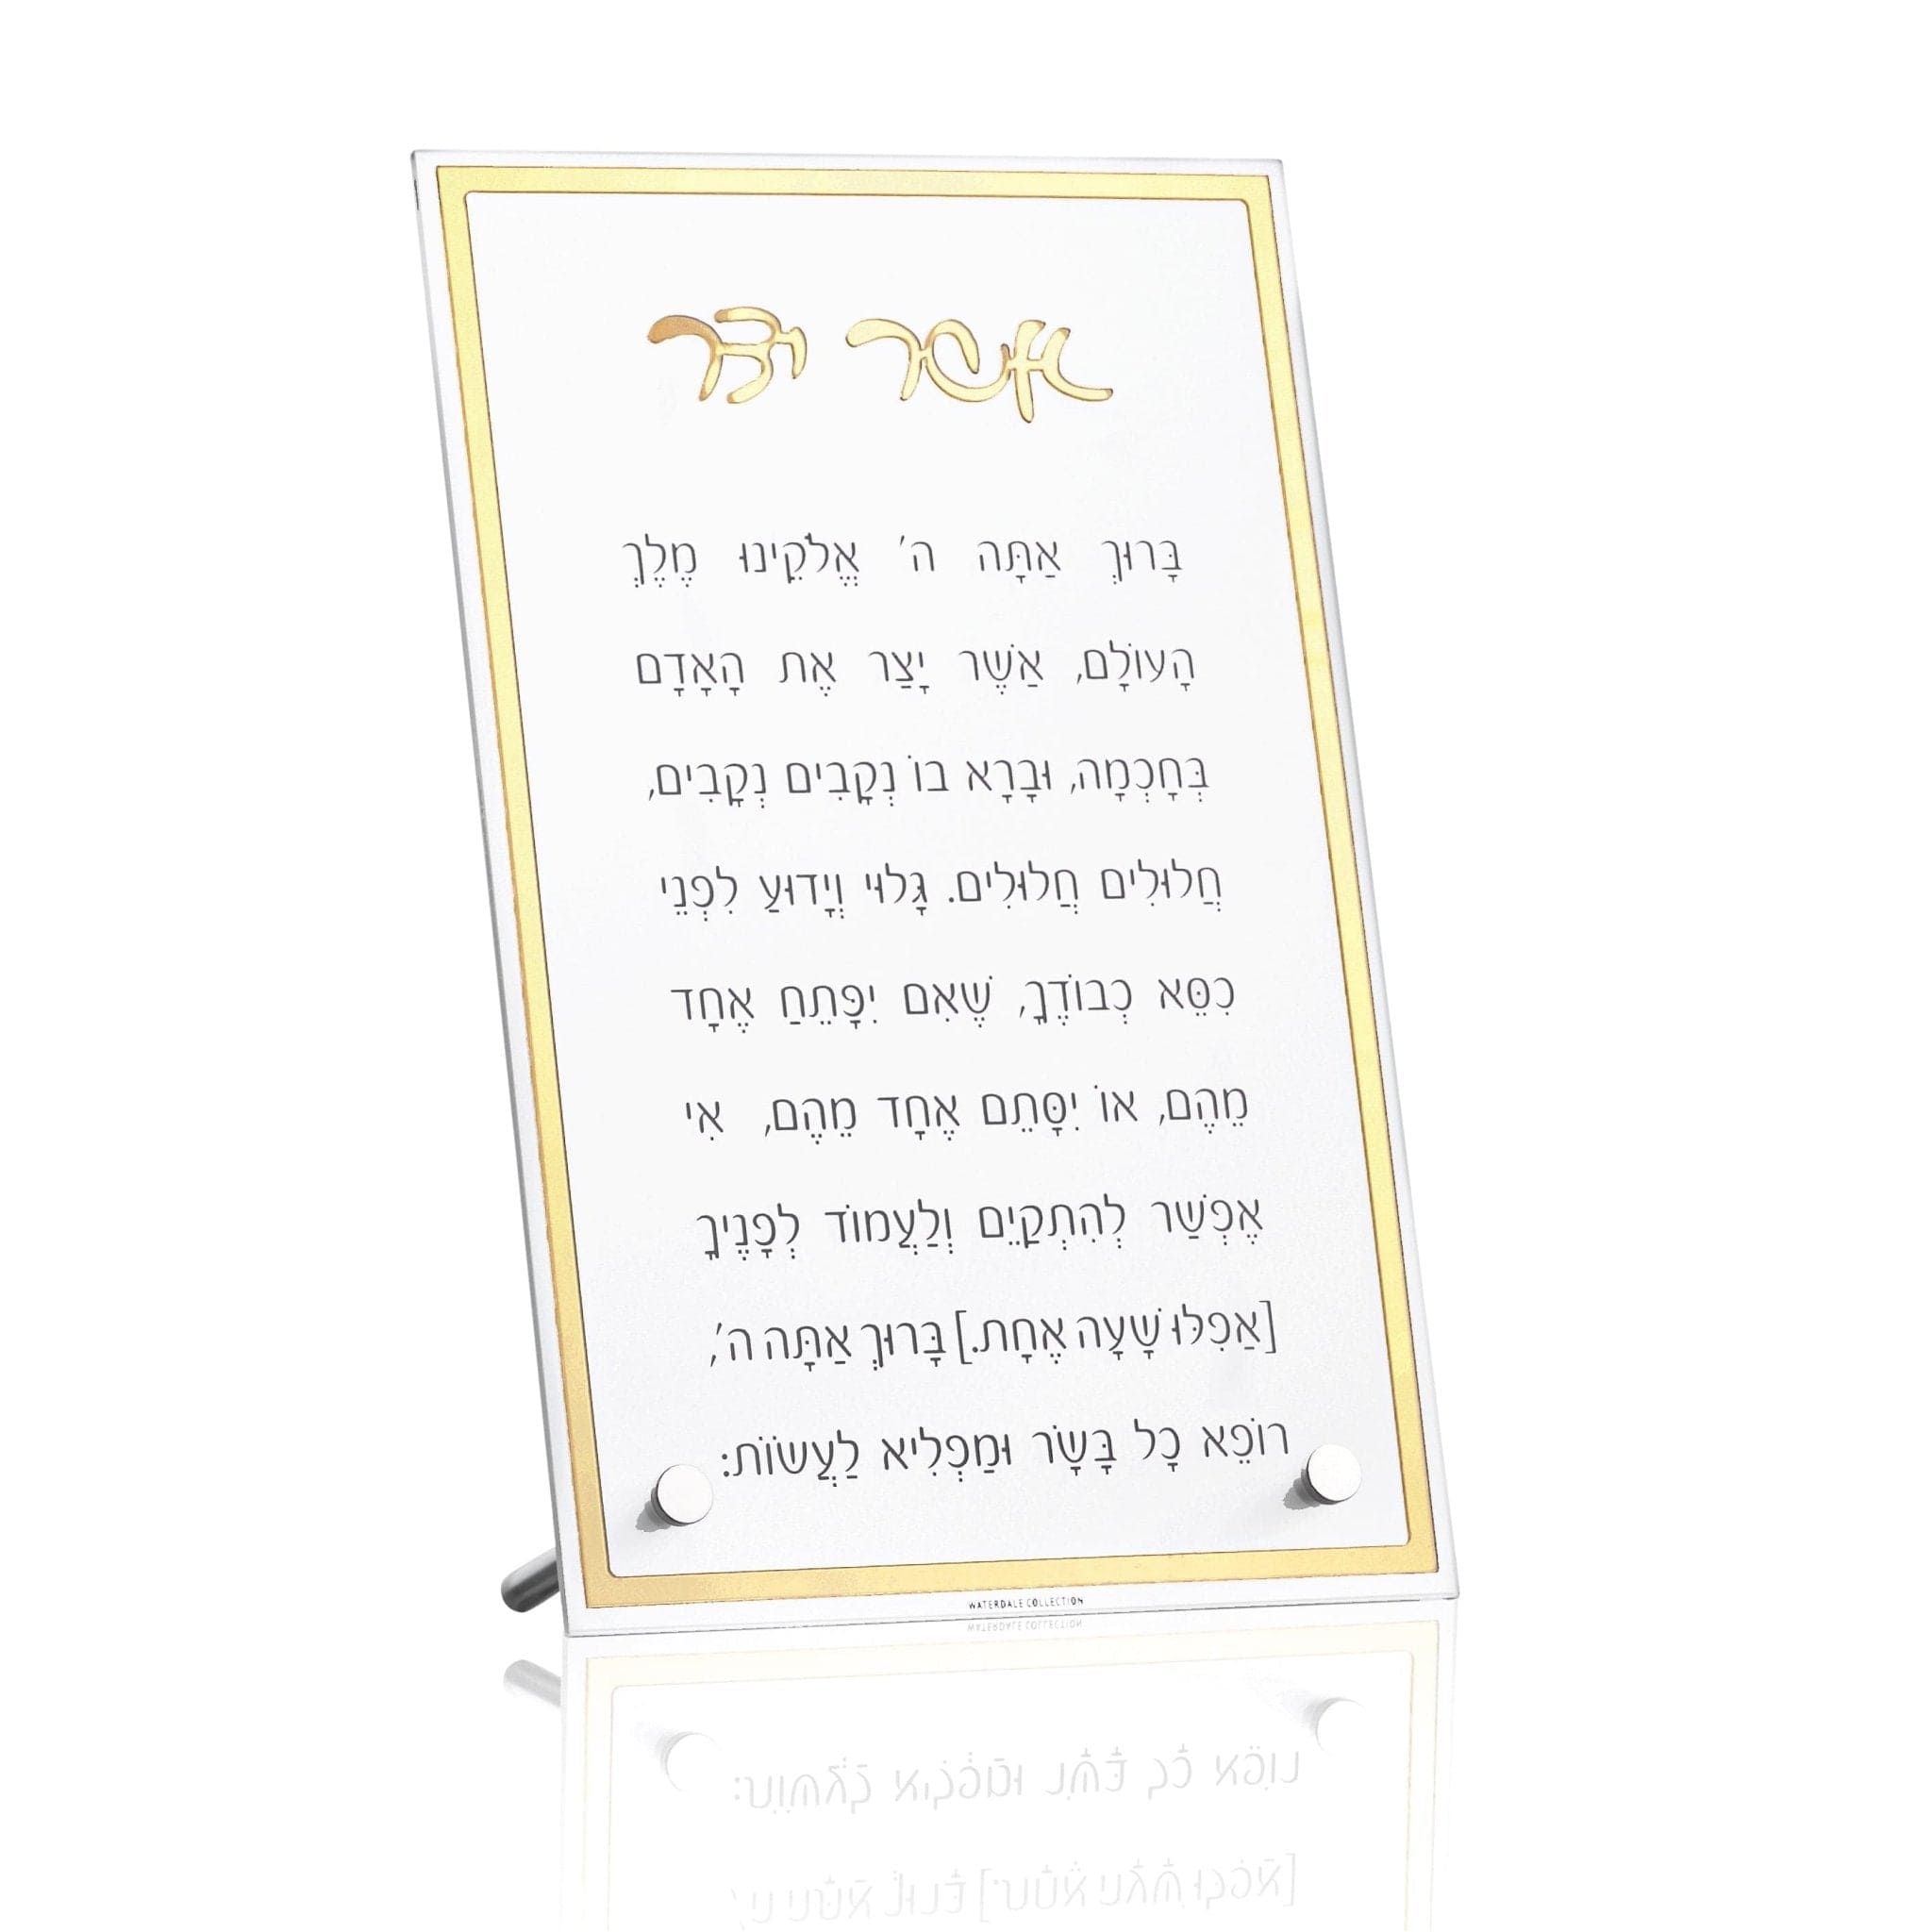 אשר יצר
בָּרוּךְ אַתָּה ה׳ אֱלֹקֵינוּ מֶלֶךְ
הָעוֹלָם, אַשֶׁר יָצַר אֶת הָאָדָם
בְּחָכְמָה, וּבָרָא בוֹ נְקָבִים נְקָבִים,
חֲלוּלִים חֲלוּלִים. גָּלוּי וְיָדוּעַ לִפְנֵי
כִסֵּא כְבוֹדֶךָ, שֶׁאִם יִפָּתֵחַ אֶחָד
מֵהֶם, אוֹ יִסָּתֵם אֶחָד מֵהֶם, אִי
אֶפְשַׁר לְהִתְקַיֵּם וְלַעֲמוֹד לְפָנֶיךָ
[אַפִלּוּ שָׁעָה אֶחָת.] בָּרוּךְ אַתָּה ה׳,
רוֹפֵא כָל בָּשָׂר וּמַפְלִיא לַעֲשׂוֹת:
WATERDALE COLLECTION